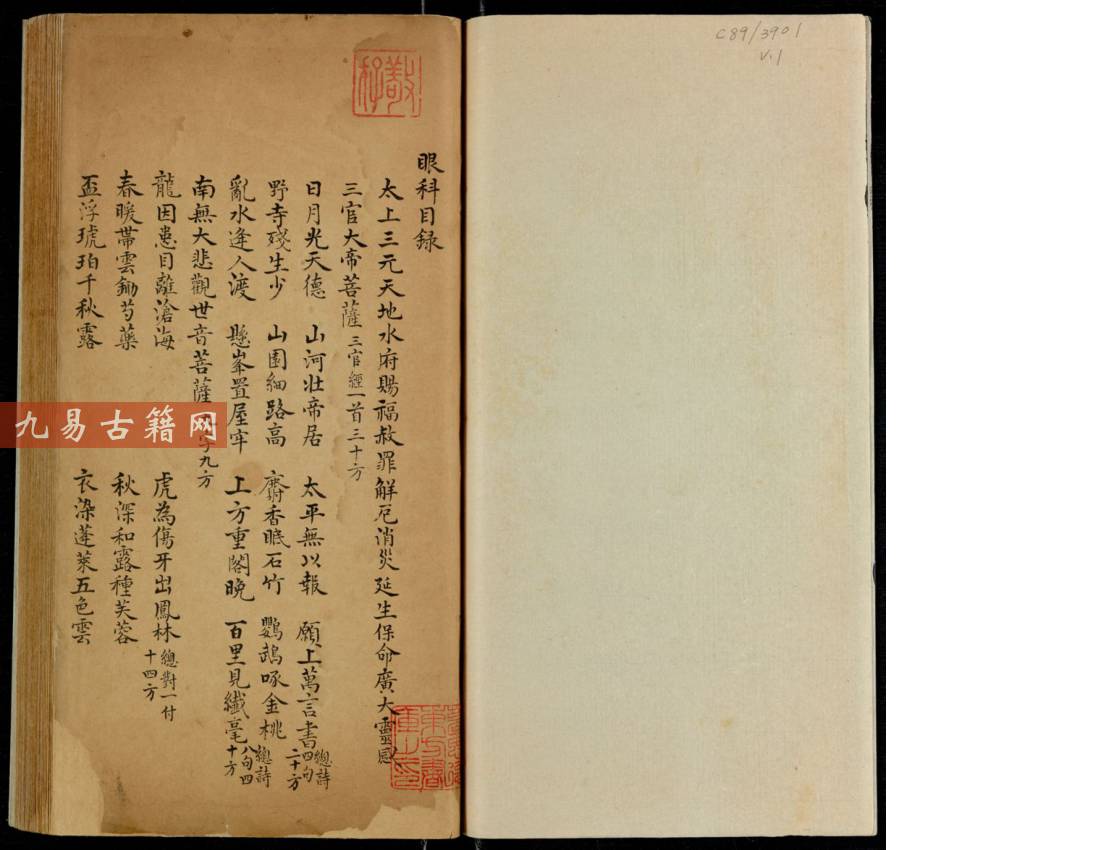 C89/3901
V.1
眼科目録
太上三元天地水府賜福赦罪解厄消災延生保命廣大靈感
三官大帝菩薩 三官經一首三十方
日月光天德 山河壯帝居 太平無以報 願上萬言書 總詩四句二十方
野寺殘生少 山園細路高 麝香眠石竹 鸚鵡啄金桃 總詩
亂水逢人渡 懸峯置屋牢 上方重閣晚 百里見纖毫 八句四十方
南無大悲觀世音菩薩 九方
龍因患目離滄海 虎為傷牙出鳳林 總對一付十四方
春暖帶雲鋤芍藥 秋深和露種芙蓉
盃浮琥珀千秋露 衣染蓬萊五色雲
九易古籍网